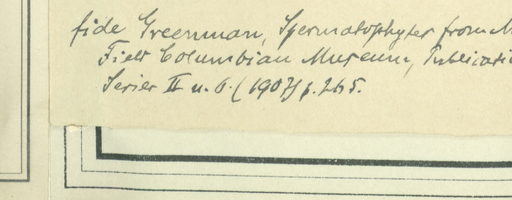 fide Greenman, Spermatophytes from M
Field Columbian Museum, Publicati
Series II n. 6. (1907) p. 265.